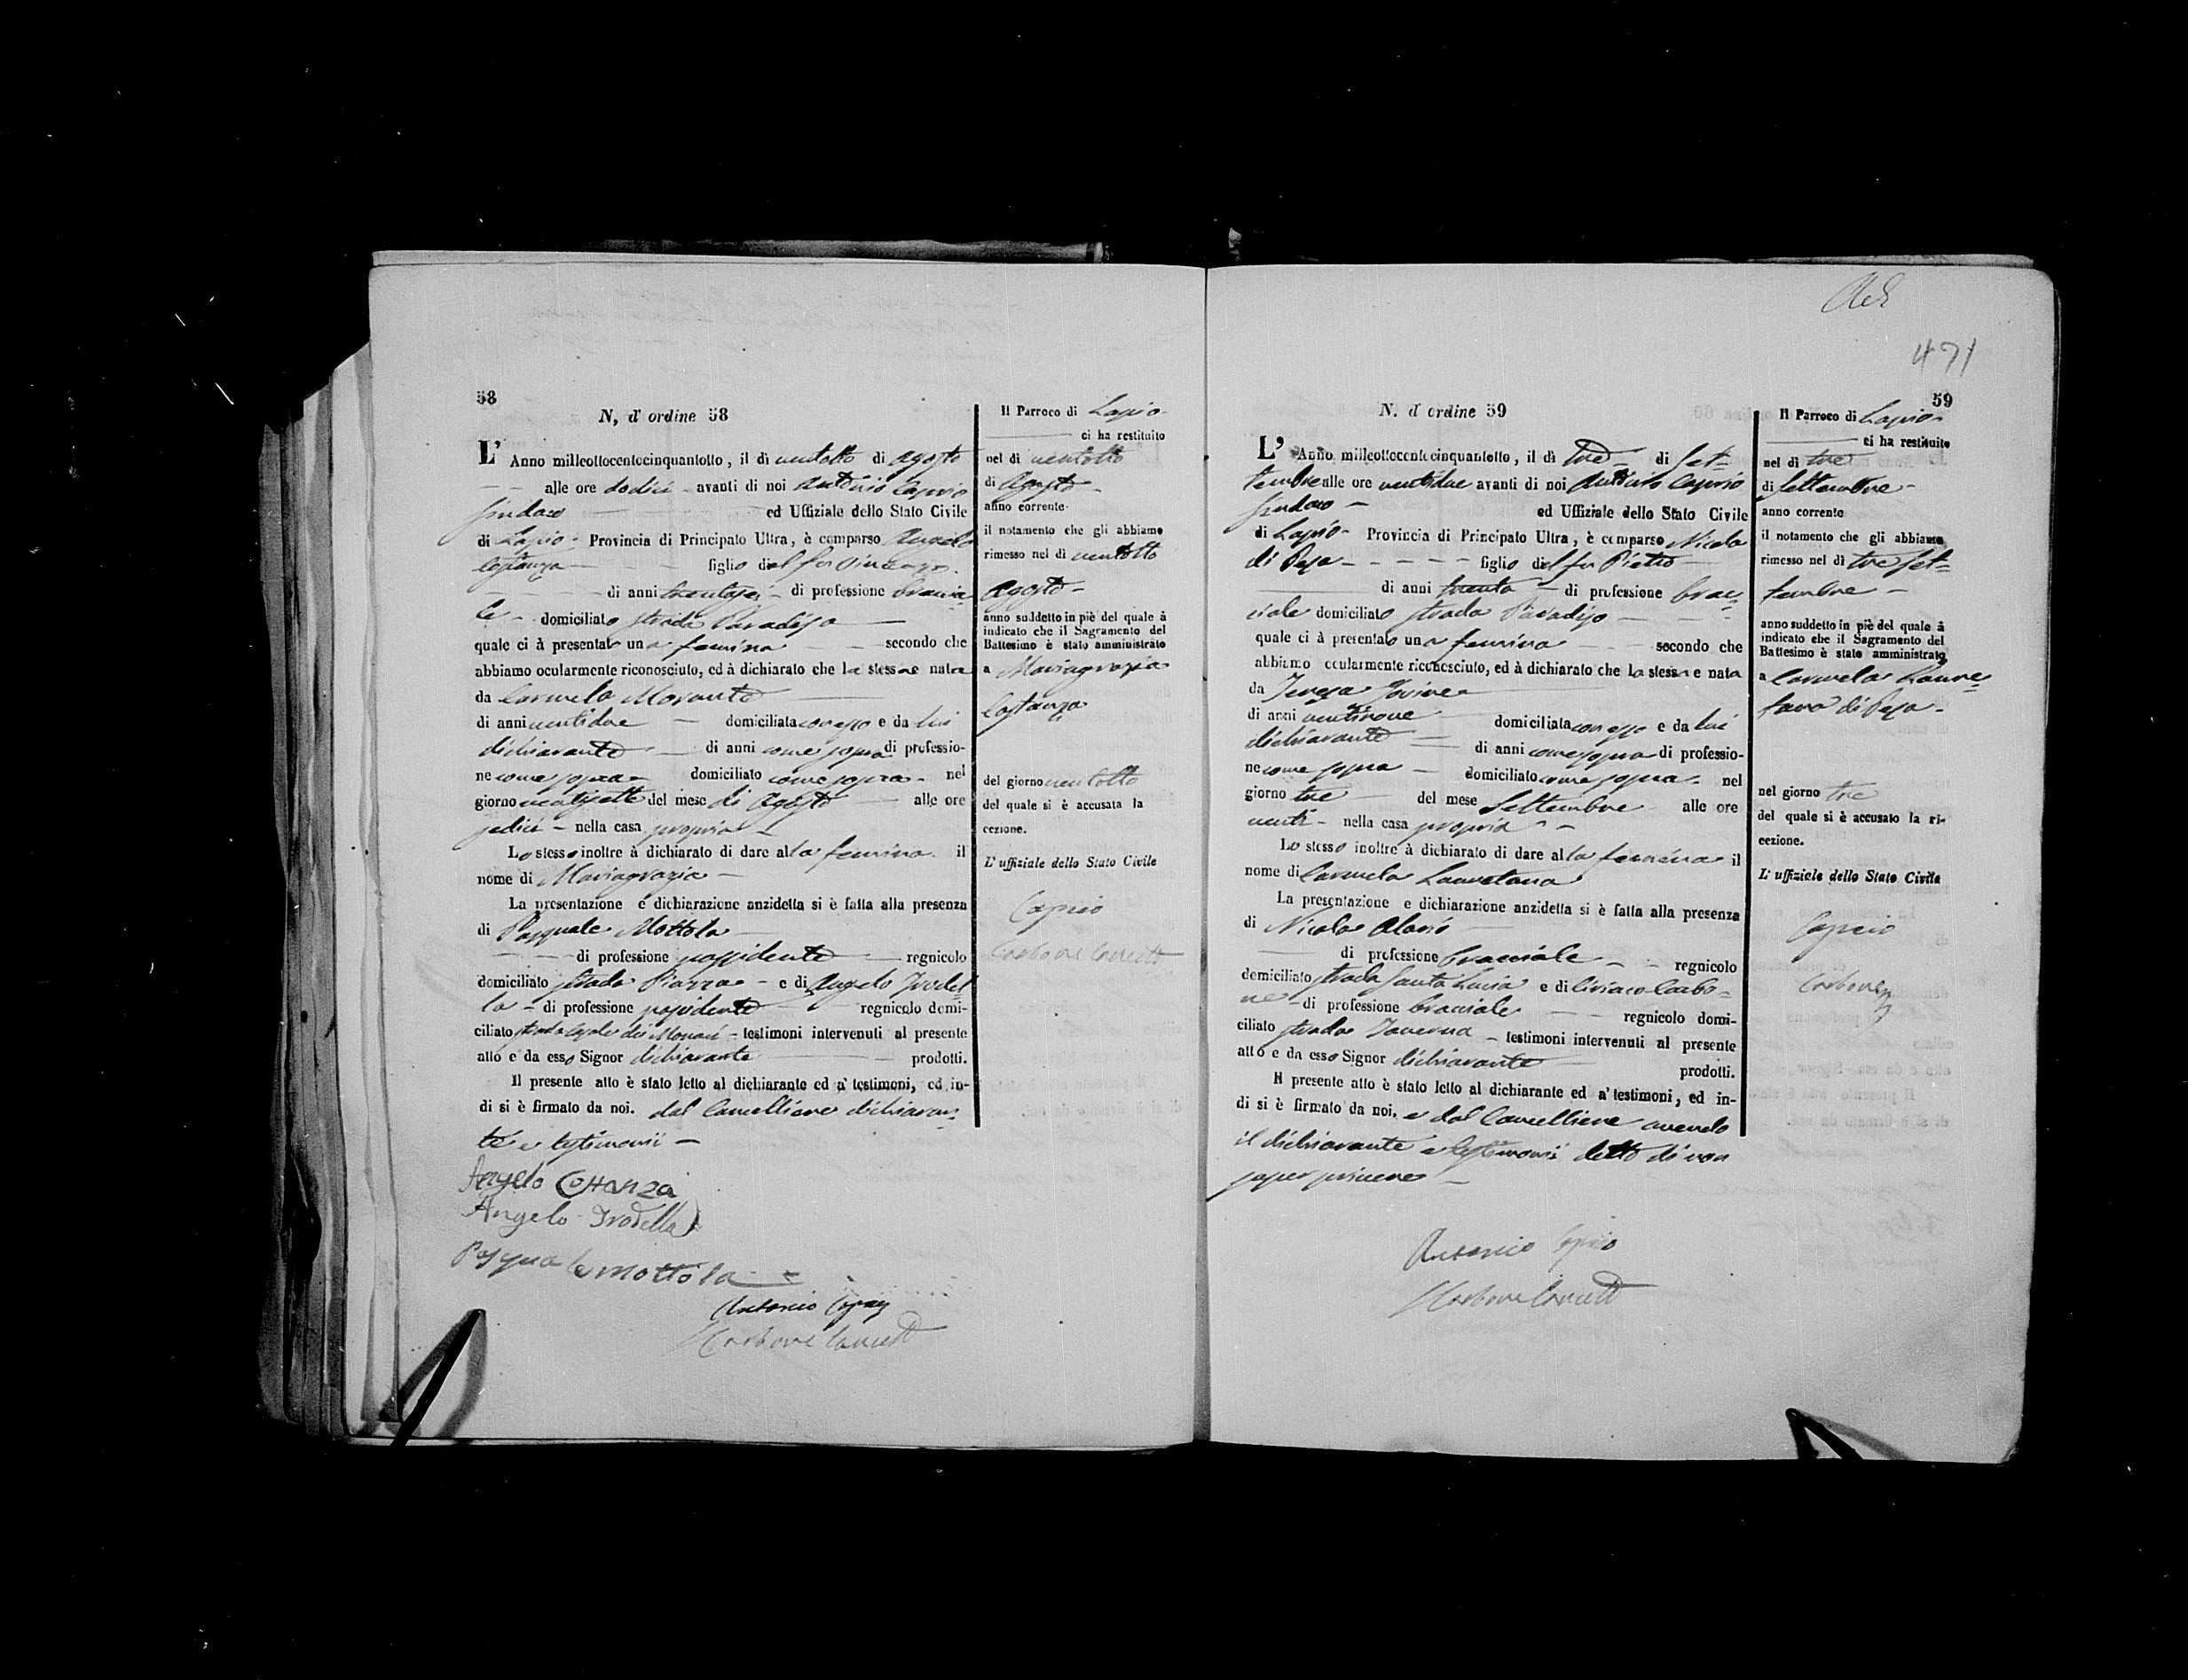 58
N, d' ordine 58
L' Anno milleottocentocinquantotto, il dì ventotto di Agosto
alle ore dodici avanti di noi Antonio Caprio
Sindaco ed Uffiziale dello Stato Civile
di Lapio Provincia di Principato Ultra, è comparso Angelo
Costanza figlio del fu Vincenzo
di anni trentasei di professione braccia-
le domiciliato strada Paradiso
quale ci à presentat una femina secondo che
abbiamo ocularmente riconosciuto, ed à dichiarato che la stessa e nata
da Carmela Morante
di anni ventidue domiciliata con esso e da lui
dichiarante di anni come sopra di professio-
ne come sopra domiciliato come sopra nel
giorno ventisette del mese di Agosto alle ore
sedici nella casa propria
Lo stesso inoltre à dichiarato di dare alla femina il
nome di Mariagrazia
La presentazione e dichiarazione anzidetta si è fatta alla presenza
di Pasquale Mottola
di professione possidente regnicolo
domiciliato strada Piazza e di Angelo Trodel-
la di professione possidente regnicolo domi-
ciliato strada dei testimoni intervenuti al presente
atto e da esso Signor dichiarante prodotti.
Il presente atto è stato letto al dichiarante ed a' testimoni, ed in-
di si è firmato da noi. dal Cancelliere dichiaran-
te e testimonii
Angelo Costanza
Angelo Trodella
Pasquale Mottola
Antonio Caprio
Carbone Cancell
Il Parroco di Lapio
ci ha restituito
nel dì ventotto
di Agosto
anno corrente
il notamento che gli abbiamo
rimesso nel dì ventotto
Agosto
anno suddetto in piè del quale à
indicato che il Sagramento del
Battesimo è stato amministrato
a Mariagrazia
Costanza
del giorno ventotto
del quale si è accusata la
cezione.
L' uffiziale dello Stato Civile
Caprio
Carbone Cancell
471
59
N. d' ordine 59
L' Anno milleottocentocinquantotto, il dì tre di Set-
tembre alle ore ventidue avanti di noi Antonio Caprio
Sindaco ed Uffiziale dello Stato Civile
di Lapio Provincia di Principato Ultra, è comparso Nicola
di Pesa figlio del fu Pietro
di anni trenta di professione brac-
ciale domiciliato strada Paradiso
quale ci à presentato una femina secondo che
abbiamo ocularmente riconosciuto, ed à dichiarato che la stessa e nata
da Teresa Iovine
di anni ventinove domiciliata con esso e da lui
dichiarante di anni come sopra di professio-
ne come sopra domiciliato come sopra nel
giorno tre del mese Settembre alle ore
venti nella casa propria
Lo stesso inoltre à dichiarato di dare alla femina il
nome di Carmela Lauretana
La presentazione e dichiarazione anzidetta si è fatta alla presenza
di Nicola
di professione bracciale regnicolo
domiciliato strada Santa Lucia e di Ciriaco Carbo-
ne di professione bracciale regnicolo domi-
ciliato strada Taverna testimoni intervenuti al presente
atto e da esso Signor dichiarante prodotti.
Il presente atto è stato letto al dichiarante ed a' testimoni, ed in-
di si è firmato da noi. e dal Cancelliere avendo
il dichiarante e testimonii detto di non
saper scrivere
Antonio Caprio
Carbone Cancell
Il Parroco di Lapio
ci ha restituito
nel dì tre
di Settembre
anno corrente
il notamento che gli abbiamo
rimesso nel dì tre Set-
tembre
anno suddetto in piè del quale à
indicato che il Sagramento del
Battesimo è stato amministrato
a Carmela Laure-
tana di Pesa
nel giorno tre
del quale si è accusato la ri-
cezione.
L' uffiziale dello Stato Civile
Caprio
Carbone